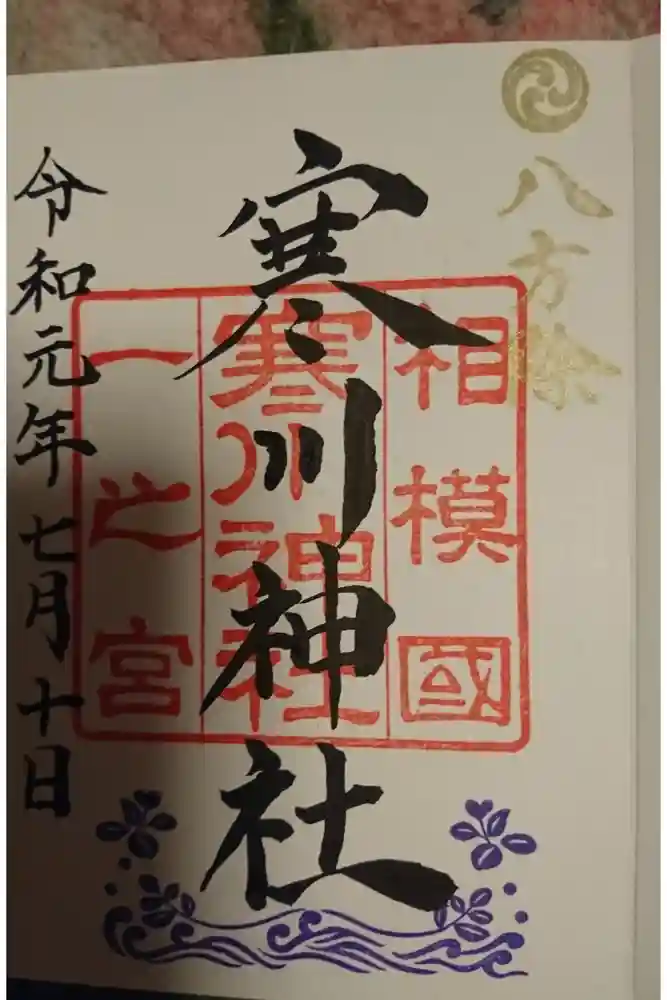 八方除
相模國
寒川神社
一之宮
寒川神社
令和元年七月十日